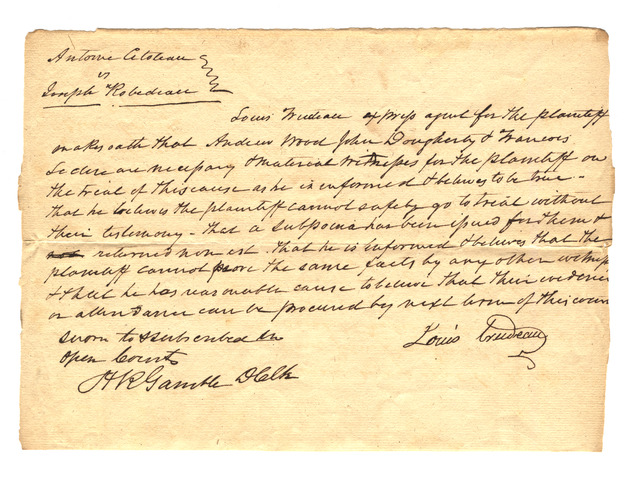 Antoine Citoleau
vs
Joseph Robedeau
Louis Trudeau express agent for the plaintiff
makes oath that Andrew Wood John Dougherty & Francois
Leclere are necessary & material witnesses for the plaintiff on
the trial of this cause as he is informed & believes to be true -
that he believes the plaintiff cannot safely go to trial without
their testimony - that a subpoena has been issued for them &
returned non est that he is informed & believes that the
plaintiff cannot prove the same facts by any other witness
& that he has reasonable cause to believe that their evidence
or attendance can be procured by next term of this court
Sworn to & subscribed in
Open Court
Louis Trudeau
H R Gamble D Clk